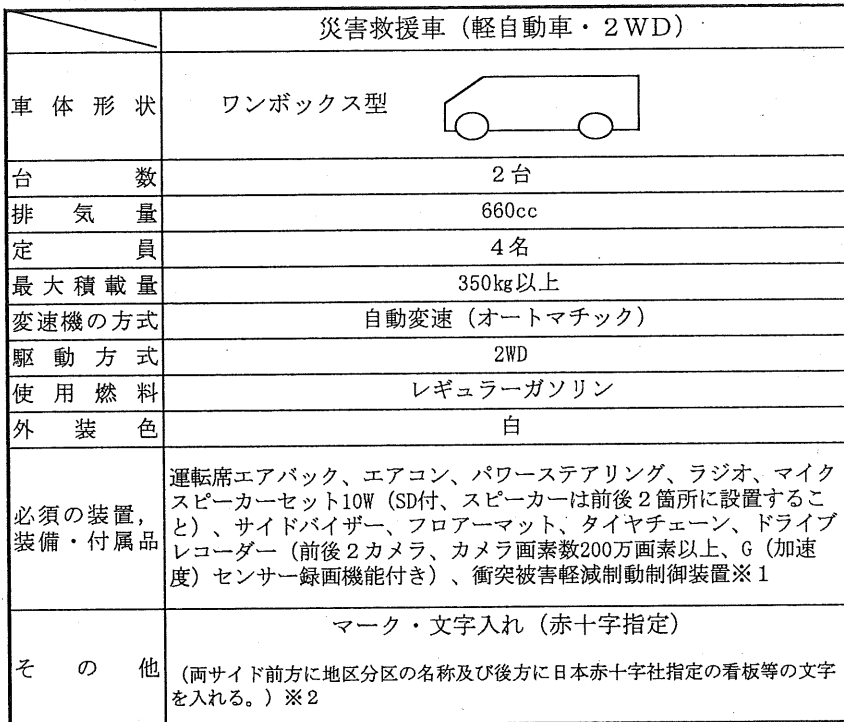 災害救援車（軽自動車・２WD）
車体形状 ワンボックス型
台数 ２台
排気量 660cc
定員 ４名
最大積載量 350㎏以上
変速機の方式 自動変速（オートマチック）
駆動方式 2WD
使用燃料 レギュラーガソリン
外装色 白
必須の装置，
装備・付属品
運転席エアバック、エアコン、パワーステアリング、ラジオ、マイク
スピーカーセット10W（SD付、スピーカーは前後２箇所に設置するこ
と）、サイドバイザー、フロアーマット、タイヤチェーン、ドライブ
レコーダー（前後２カメラ、カメラ画素数200万画素以上、G（加速
度）センサー録画機能付き）、衝突被害軽減制動制御装置※１
その他
マーク・文字入れ（赤十字指定）
（両サイド前方に地区分区の名称及び後方に日本赤十字社指定の看板等の文字
を入れる。）※２